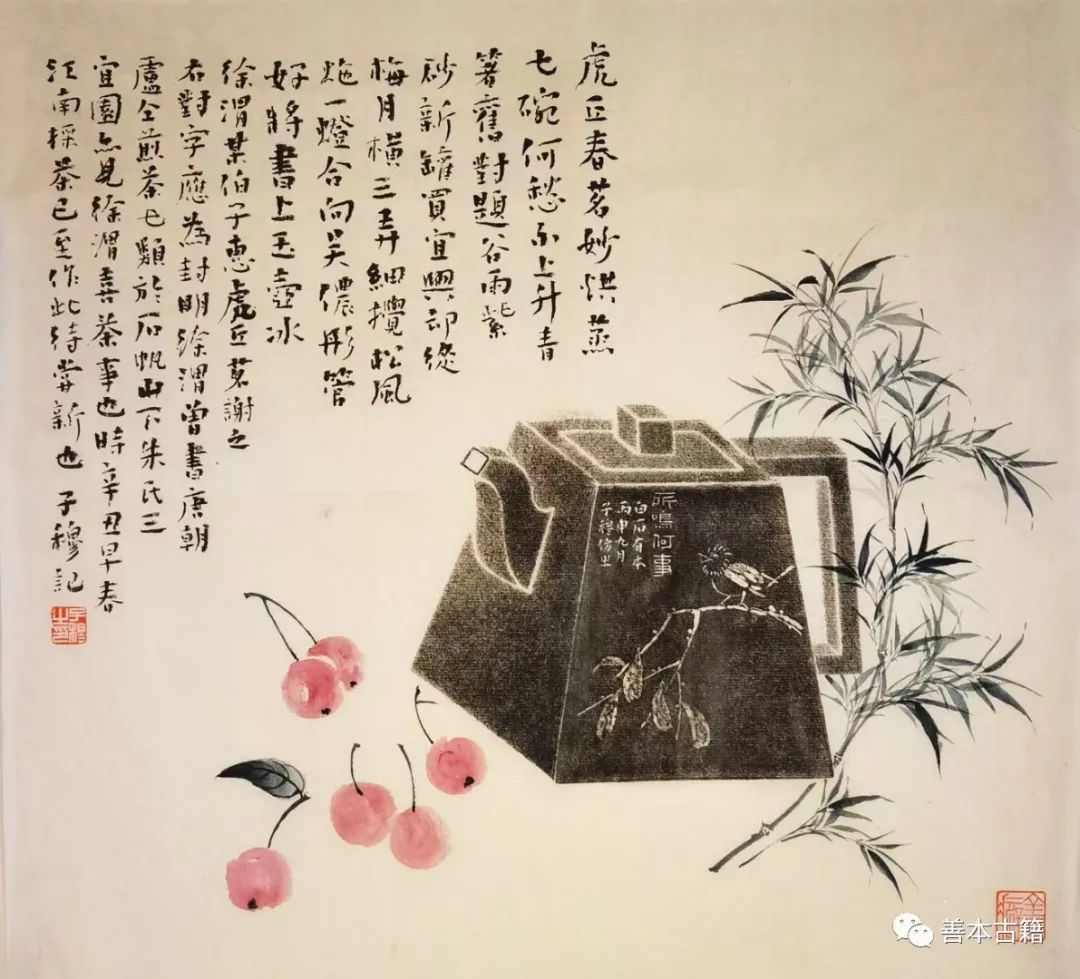 虎丘春茗妙烘蒸
七碗何愁不上升青
箬舊對題谷雨紫
砂新罐買宜興却從
梅月橫三弄細攪松風
灺一燈合向吴儂彤管
好將書上玉壺冰
徐渭某伯子惠虎丘茗謝之
右對字應為封明徐渭曾書唐朝
盧仝煎茶七類於石帆山下朱氏三
宜園亦見徐渭喜茶事也時辛丑早春
江南採茶已至作此待嘗新也 子穆記
所鳴何事
白石有本
丙申九月
子穆仿之
善本古籍